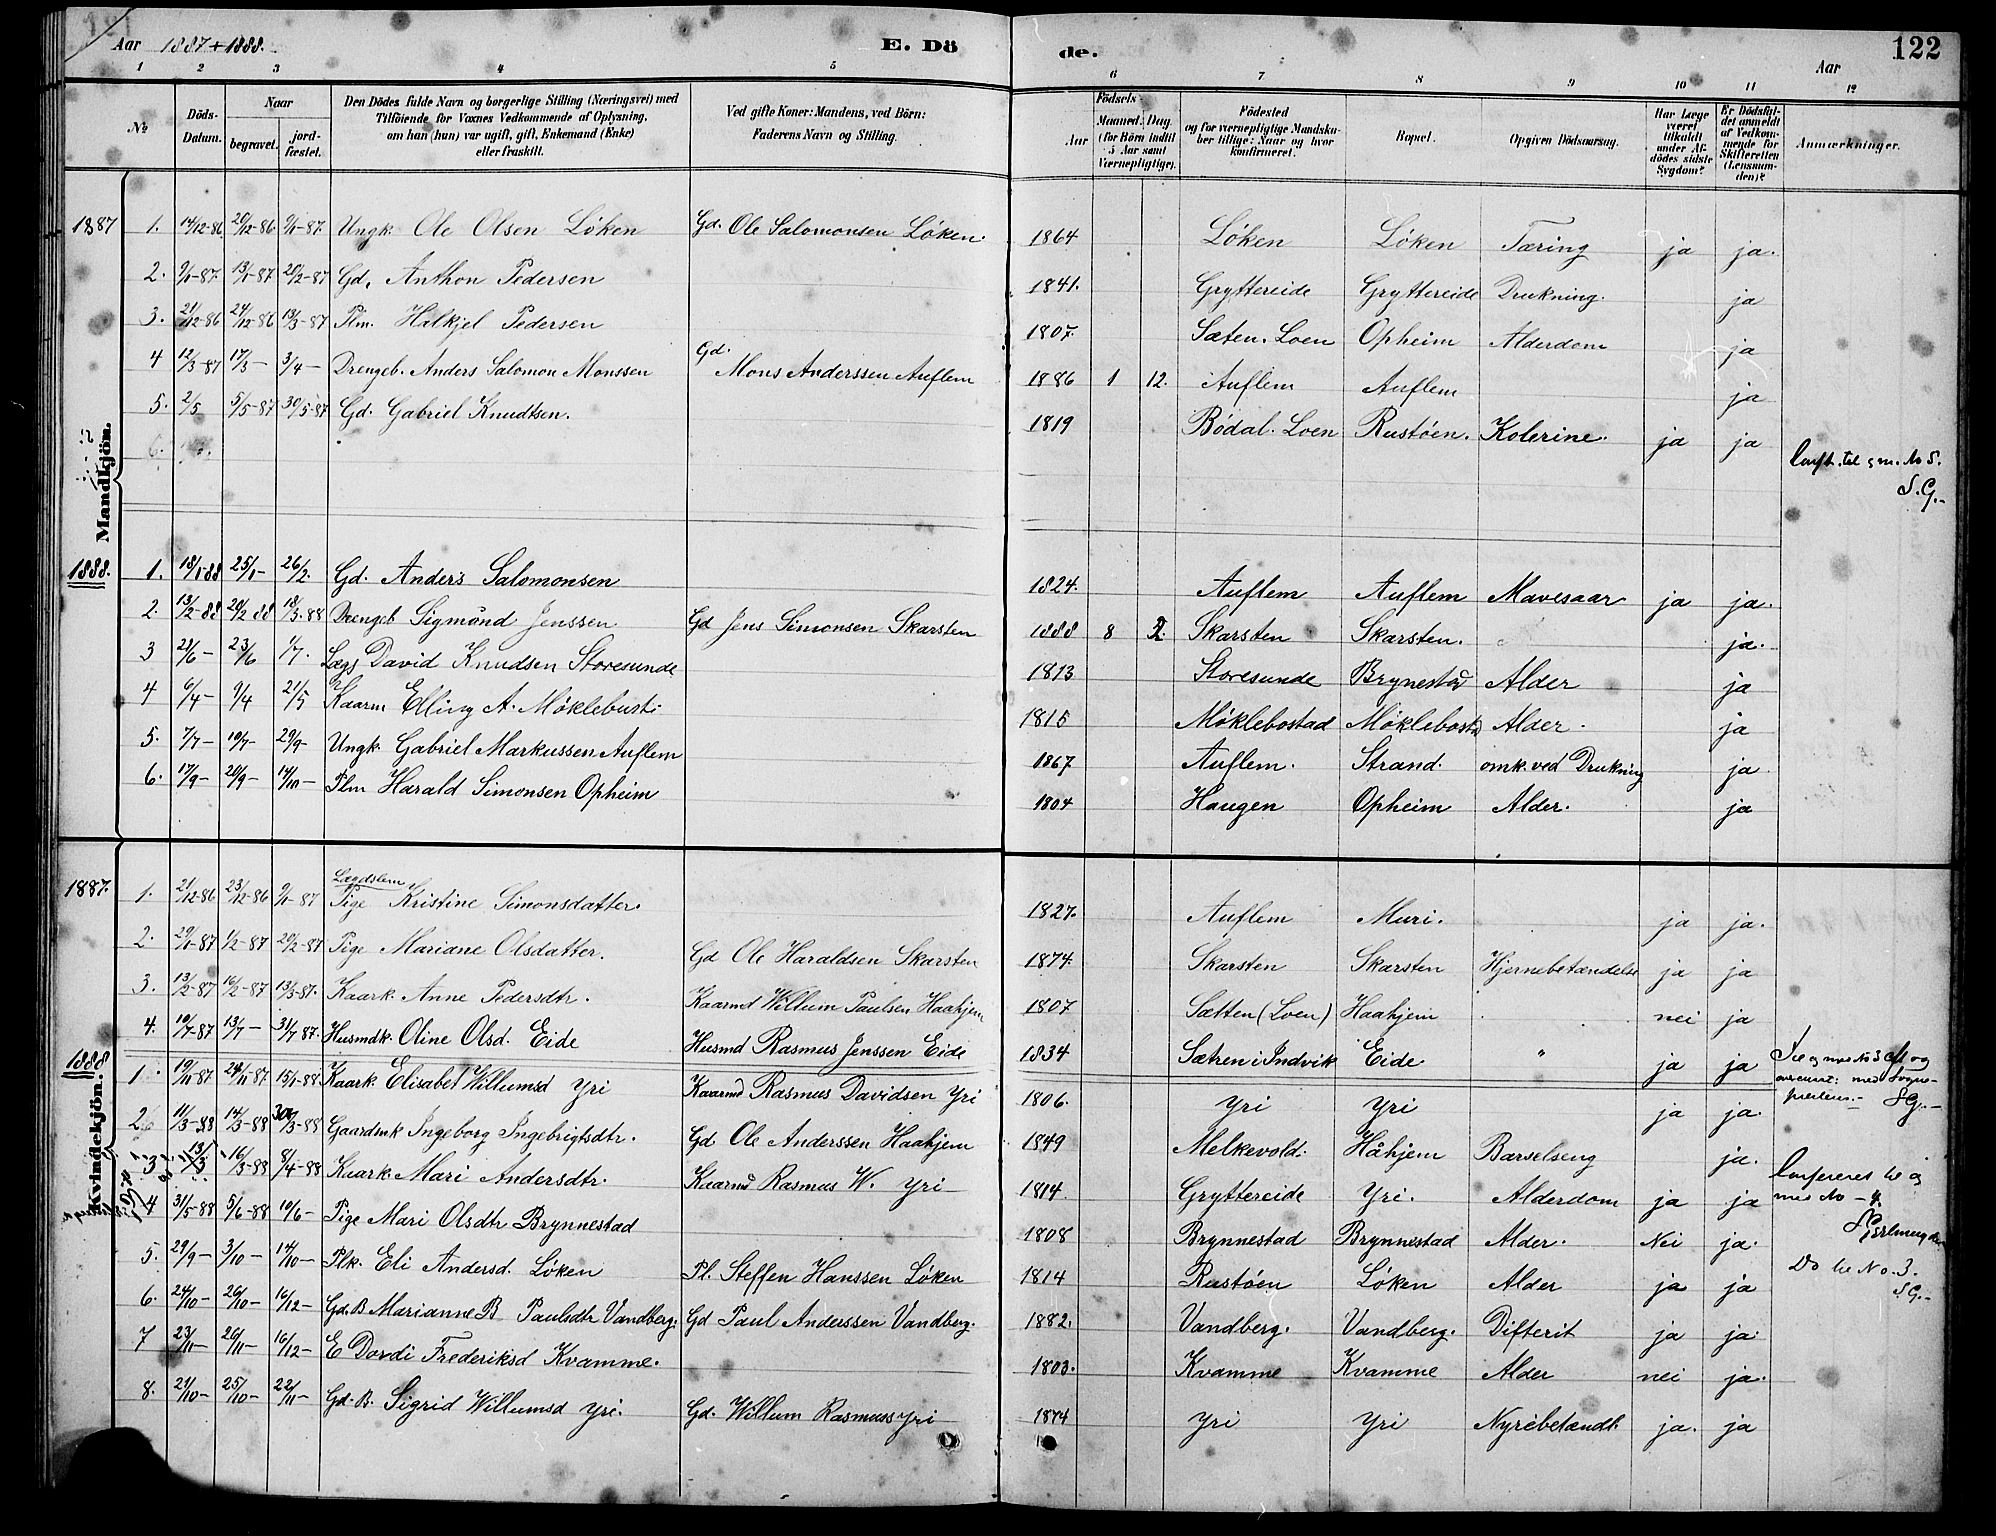 Aar 1887 + 1888. E. Dö de. Aar 122
1 2 3 4 5 6 7 8 9 10 11 12
No. Döds-Datum. Naar begravet. jordfæstet. Den Dödes fulde Navn og borgerlige Stilling (Næringsvei) med Tilföiende for Voxnes Vedkommende af Oplysning, om han (hun) var ugift, gift, Enkemand (Enke) eller fraskilt. Ved gifte Koner: Mandens, ved Börn: Faderens Navn og Stilling. Födsels Aar Maaned. Dag. (for Börn indtil 5 Aar samt Værnepligtige). Födested og for værnepligtige Mandskaber tillige: Naar og hvor konfirmeret. Bopæl. Opgiven Dödsaarsag. Har Læge været tilkaldt under Afdödes sidste Sygdom? Er Dödsfaldet anmeldt af Vedkommende for Skifteretten (Lensmanden)? Anmærkninger.
Mandkjön.
1887 1. 14/12-86 20/12-86 9/1-87. Ungk. Ole Olsen Löken Gd. Ole Salomonsen Löken. 1864 Löken Löken Tæring ja ja.
2. 9/1-87. 13/1-87 20/2-87 Gd. Anthon Pedersen 1841. Gryttereide Gryttereide Drukning. ja
3. 21/12-86 24/12-86 13/3-87 Plm. Halkjel Pedersen 1807. Sæten. Loen Opheim Alderdom ja
4 12/3-87 17/3- 3/4- Drengeb. Anders Salomon Monssen Gd. Mons Anderssen Auflem 1886 1 12. Auflem Auflem ja
5. 2/5 5/5-87 30/5-87 Gd. Gabriel Knudtsen. 1819 Bödal. Loen Rustöen. Kolerine. ja ja
6.
S.G.-
1888. 1. 18/1 88 25/1- 26/2. Gd. Anders Salomonsen 1824. Auflem Auflem Mavesaar ja ja.
2. 13/2-88 20/2 88 18/3.88 Drengeb Sigmund Jenssen Gd Jens Simonsen Skarsten 1888 8 2. Skarsten Skarsten. ja.
3 21/6- 23/6 1/7. Lægs David Knudsen Storesunde 1813 Storesunde Brynestad Alder ja
4 6/4- 9/4 21/5 Kaarm Elling A. Möklebust. 1815 Möklebostad Möklebostd Alder. ja
5. 7/7- 10/7- 29/9- Ungk. Gabriel Markussen Auflem 1867 Auflem. Strand. omk. ved Drukning ja
6. 17/9- 20/9- 14/10- Plm Harald Simonsen Opheim 1804 Haugen Opheim Alder. ja
Kvindekjön.
1887. 1. 21/12-86 23/12-86 9/1-87 Lægdslem Pige Kristine Simonsdatter. 1827. Auflem Muri. ja ja.
2. 29/1-87 1/2-87 20/2-87 Pige Mariane Olsdatter. Gd Ole Haraldsen Skarsten 1874. Skarsten Skarsten Hjernebetændelse ja ja
3. 13/2-87 16/2-87 13/3-87. Kaark. Anne Pedersdtr. Kaarmd Willum Paulsen Haahjem 1807 Sætten (Loen) Haahjem nei ja
4. 10/7-87 13/7- 31/7 87. Husmdk. Oline Olsd. Eide Husmd Rasmus Jenssen Eide 1834 Sætren i Indvik Eide " ja ja
1888 1. 19/11-87 24/11-87 15/1-88 Kaark. Elisabet Willumsd Yri Kaarmd Rasmus Davidsen Yri 1806. Yri Yri ja ja.
2. 11/3-88 14/3-88 30/3-88 Gaardmk Ingeborg Ingebrigtsdtr. Gd Ole Anderssen Haahjem 1849 Melkevold. Håhjem Barselseng ja.
3 13/3 16/3-88 8/4-88 Kaark. Mari Andersdtr. Kaarmd Rasmus W. Yri 1814. Gryttereide Yri. Alderdom ja ja
4 31/5-88 5/6-88 10/6- Pige Mari Olsdtr Brynnestad 1808 Brynnestad Brynnestad Alder. Nei ja.
5. 29/9- 3/10- 14/10- Plk. Eli Andersd. Löken Pl. Steffen Hanssen Löken 1814 Rustöen Löken Alder ja ja
Do No. 3. S.G.-
6. 24/10- 26/10- 16/12- Gd. B Marianne B Paulsdtr Vandberg. Gd Paul Anderssen Vandberg. 1882. Vandberg. Vandberg. Difterit ja ja.
7 23/11- 26/11- 16/12- E Dordi Frederiksd Kvamme. 1803. Kvamme Kvamme Alder nei ja.
8. 21/10- 25/10- 22/11- Gd. B. Sigrid Willumsd Yri. Gd. Willum Rasmuss Yri 1874 Yri Yri Nyrebetændt. ja. ja